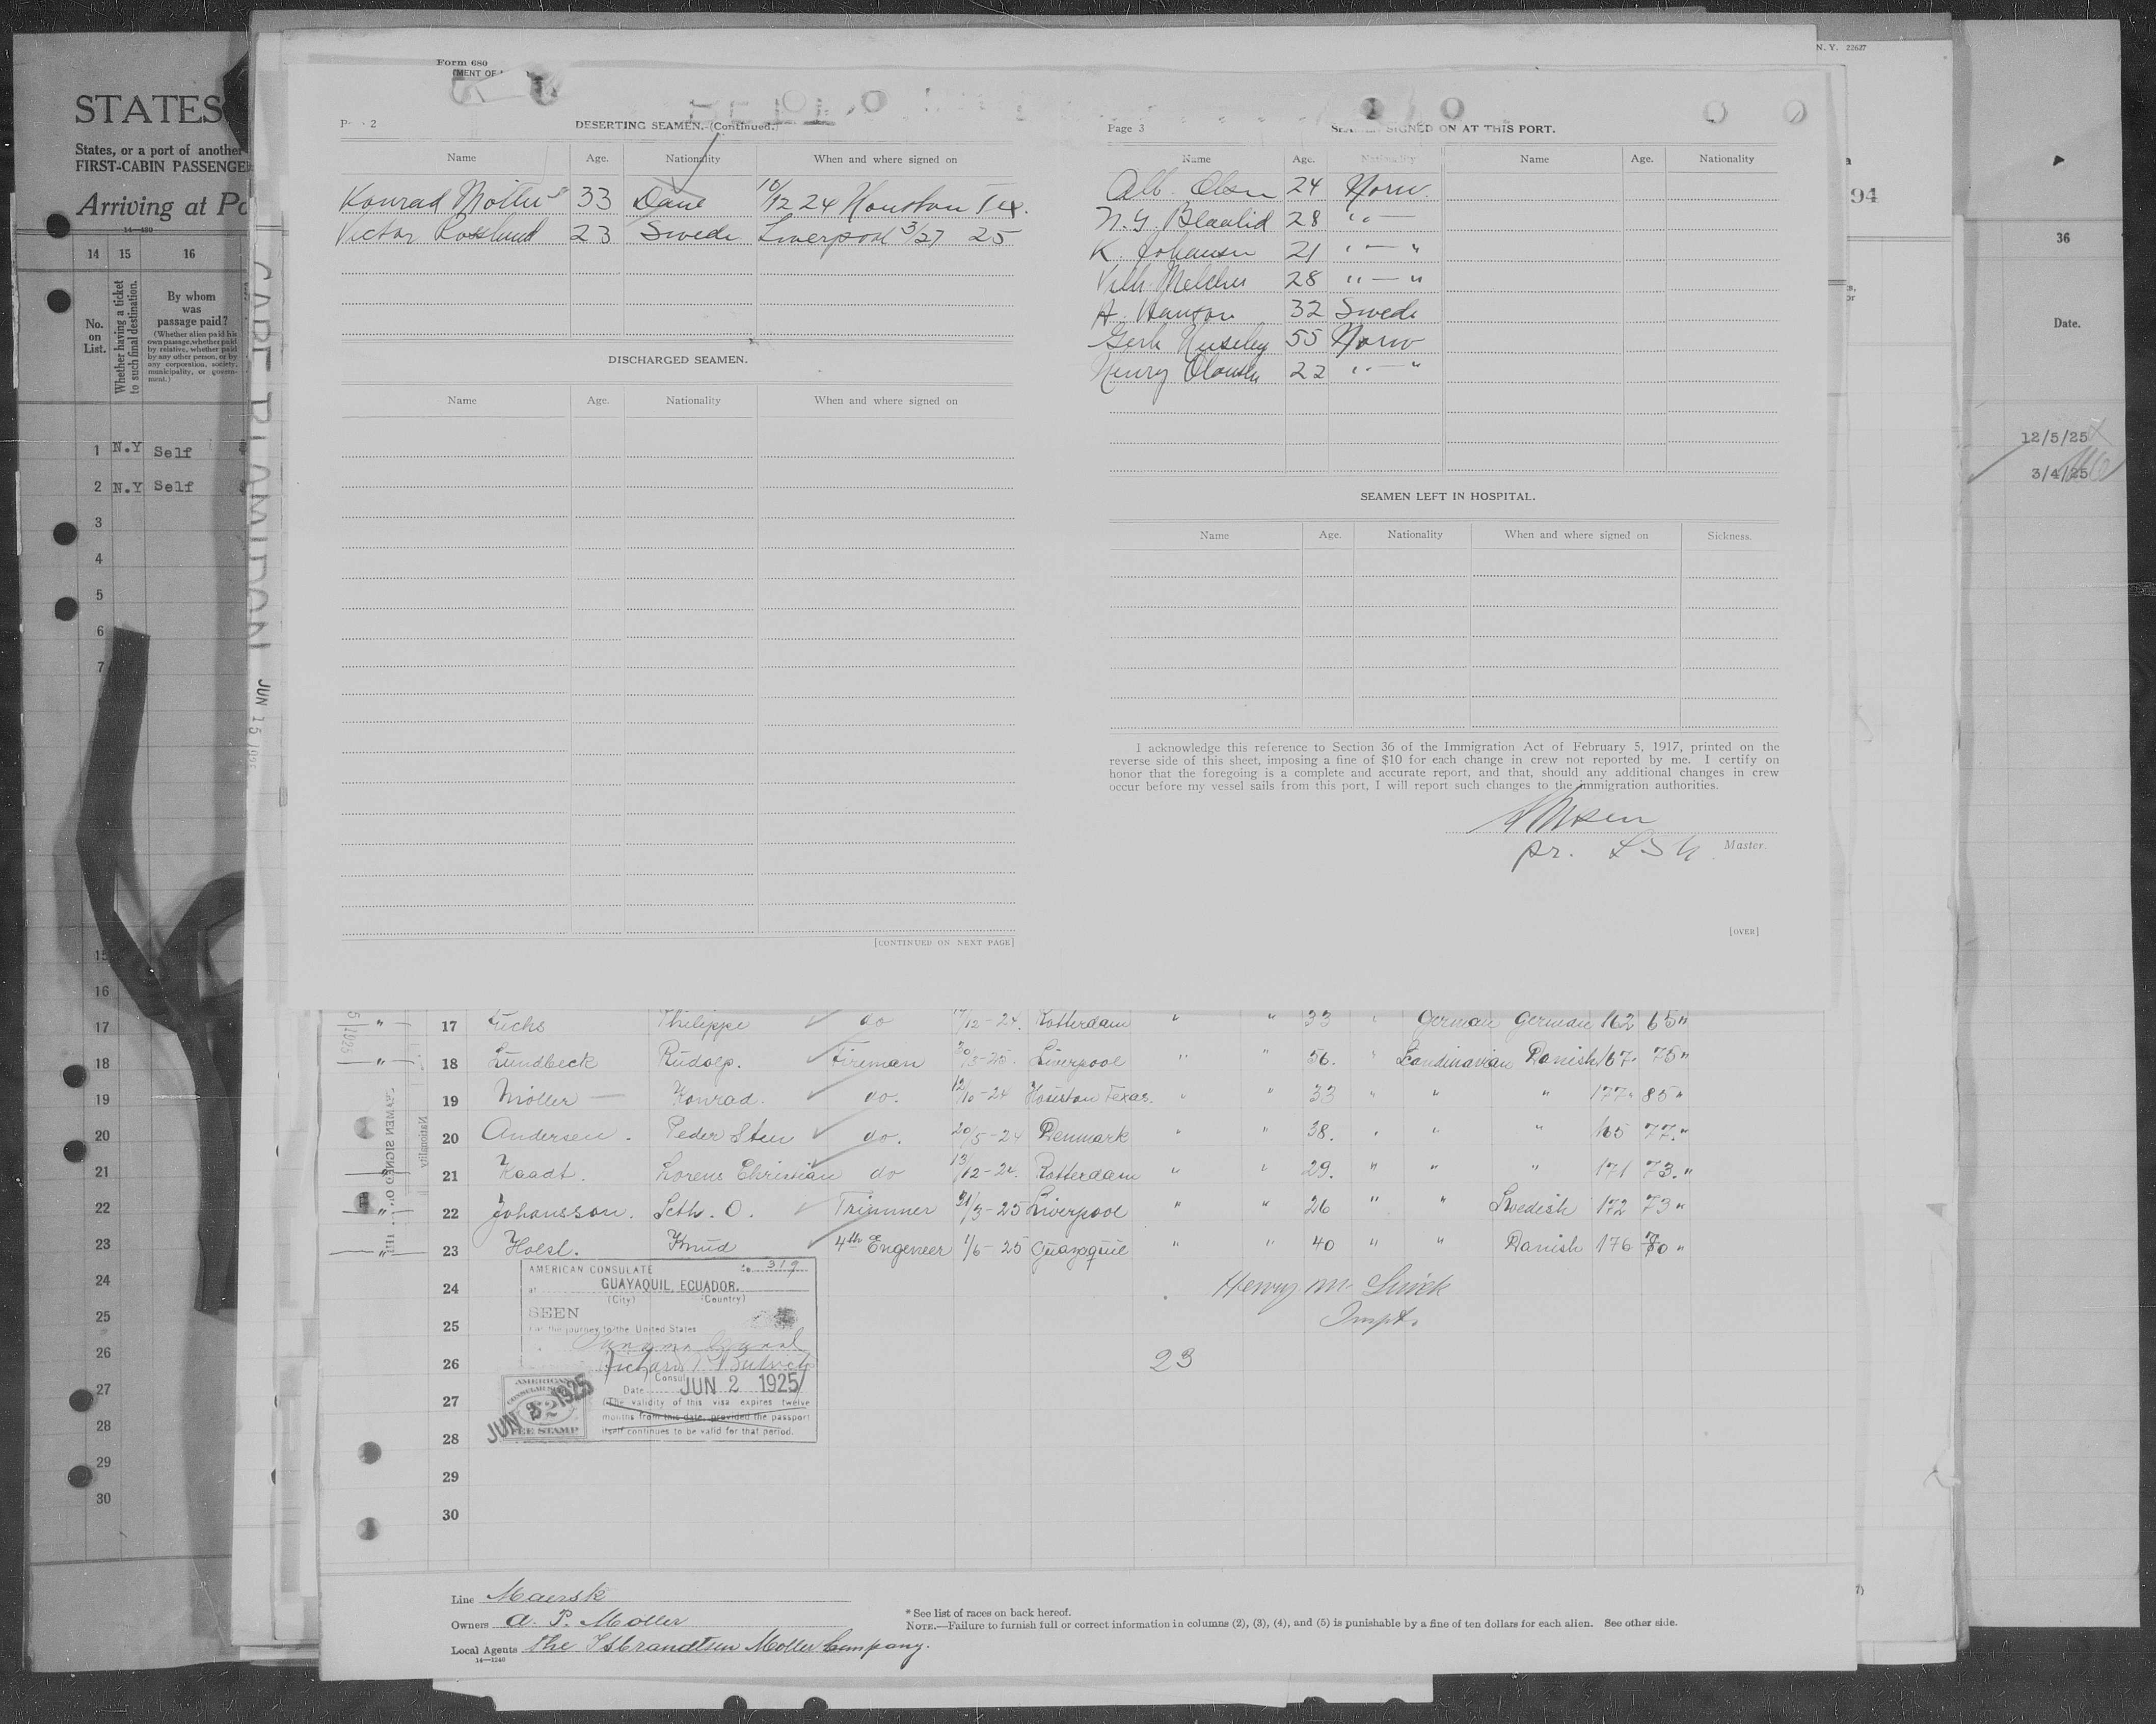 Form 680
STATES
States, or a port of another
FIRST-CABIN PASSENGE
Arriving at Po
14—450
14 15 16
No. on List.
Whether having a ticket to such final destination.
By whom was passage paid?
(Whether alien paid his own passage, whether paid by relative, whether paid by any other person, or by any corporation, society, municipality, or government.)
1 N.Y Self
2 N.Y Self
3
4
5
6
7
15
16
17
18
19
20
21
22
23
24
25
26
27
28
29
30
JUN 15
2
DESERTING SEAMEN. (Continued.)
Name Age. Nationality When and where signed on
Konrad Möller 33 Dane 10/12 24 Houston Tex.
Victor 23 Swede Liverpool 3/27 25
DISCHARGED SEAMEN.
Name Age. Nationality When and where signed on
[CONTINUED ON NEXT PAGE]
Page 3
SIGNED ON AT THIS PORT.
Name Age. Nationality Name Age. Nationality
Alb. Olsen 24 Norw.
Blaalid 28 " — 
K. Johansen 21 " — "
28 " — "
A. Hanson 32 Swede
55 Norw
Henry 22 " — "
SEAMEN LEFT IN HOSPITAL.
Name Age. Nationality When and where signed on Sickness.
I acknowledge this reference to Section 36 of the Immigration Act of February 5, 1917, printed on the
reverse side of this sheet, imposing a fine of $10 for each change in crew not reported by me. I certify on
honor that the foregoing is a complete and accurate report, and that, should any additional changes in crew
occur before my vessel sails from this port, I will report such changes to the immigration authorities.
pr.
Master.
[OVER]
N. Y. 22627
94
36
Date.
12/5/25
3/4/25
17 Fuchs Philippe do 17/12-24. Rotterdam " " 33 " German German 162 65 "
18 Lundbeck Rudolp. Fireman Liverpool " " 56. " Scandinavian Danish 167. 75 "
19 Möller — Konrad. do. 12/10-24 Houston Texas. " " 33 " " " 177. 85 "
20 Andersen. Peder Sten do. 20/5-24 Denmark " " 38. " " " 165 77. "
21 Kaadt. Lorens Christian do 13/12-24. Rotterdam " " 29. " " " 171 73. "
22 Johansson. Seth. O. Trimmer 31/3-25 Liverpool " " 26 " " Swedish 172 73 "
23 Holst. Knud 4th Engeneer 1/6-25 Guayaquil " " 40 " " Danish 176 70 "
24
25
26
27
28
29
30
AMERICAN CONSULATE No. 319
at GUAYAQUIL, ECUADOR.
(City) (Country)
SEEN
For the journey to the United States
Richard
Consul
Date JUN 2 1925
(The validity of this visa expires twelve
months from this date, provided the passport
itself continues to be valid for that period.
AMERICAN
CONSULAR SERVICE
$2
FEE STAMP
JUN 2 1925
Henry M.
Inspt.
23
Line Maersk
Owners A. P. Moller
Local Agents the Isbrandtsen Moller Company.
14—1240
* See list of races on back hereof.
NOTE.—Failure to furnish full or correct information in columns (2), (3), (4), and (5) is punishable by a fine of ten dollars for each alien. See other side.